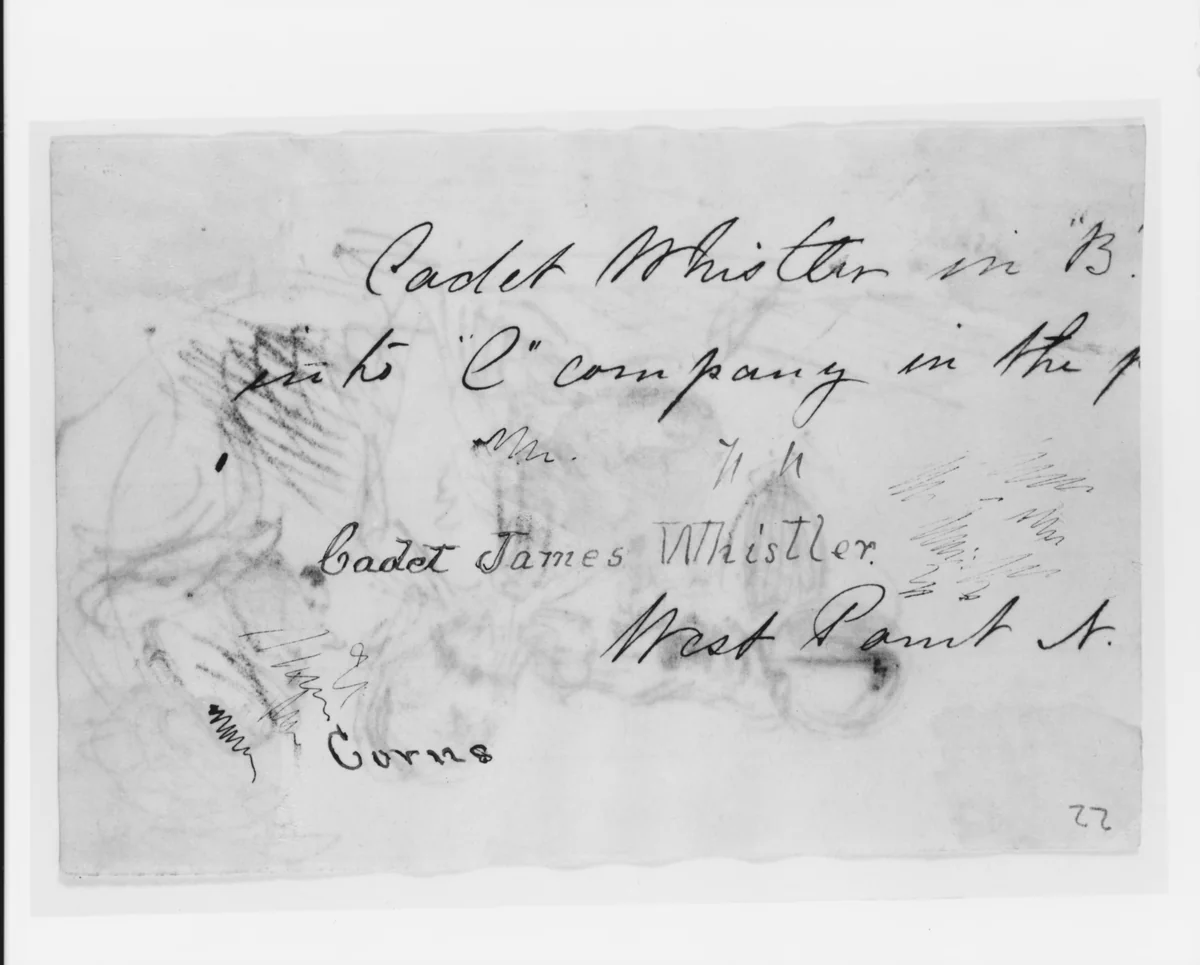 Cadet Whistler in "B"
into "C" company in the
Mr.
Cadet James Whistler.
West Point N.
Corns
22